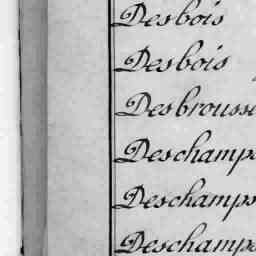 Desbois
Desbois
Desbrousse
Deschamps
Deschamps
Deschamps